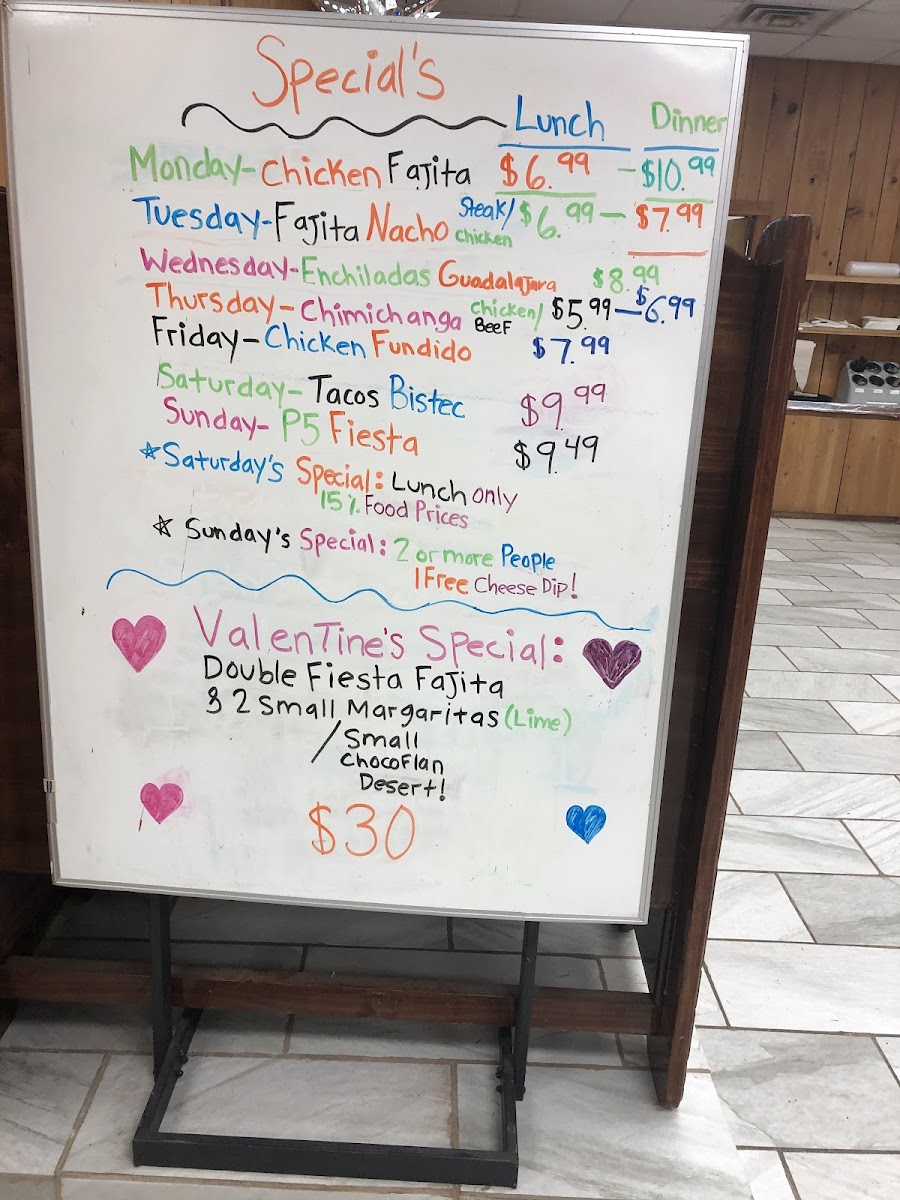 Special's
Lunch Dinner
Monday- Chicken Fajita $6.99 - $10.99
Tuesday- Fajita Nacho Steak/ Chicken $6.99 - $7.99
Wednesday- Enchiladas Guadalajara $8.99
Thursday- Chimichanga Chicken/ Beef $5.99 - $6.99
Friday- Chicken Fundido $7.99
Saturday- Tacos Bistec $9.99
Sunday- P5 Fiesta $9.49
☆Saturday's Special: Lunch only
15% Food Prices
☆ Sunday's Special: 2 or more People
1 Free Cheese Dip!
Valentine's Special:
Double Fiesta Fajita
& 2 Small Margaritas (Lime)
/ Small
Chocoflan
Desert!
$30